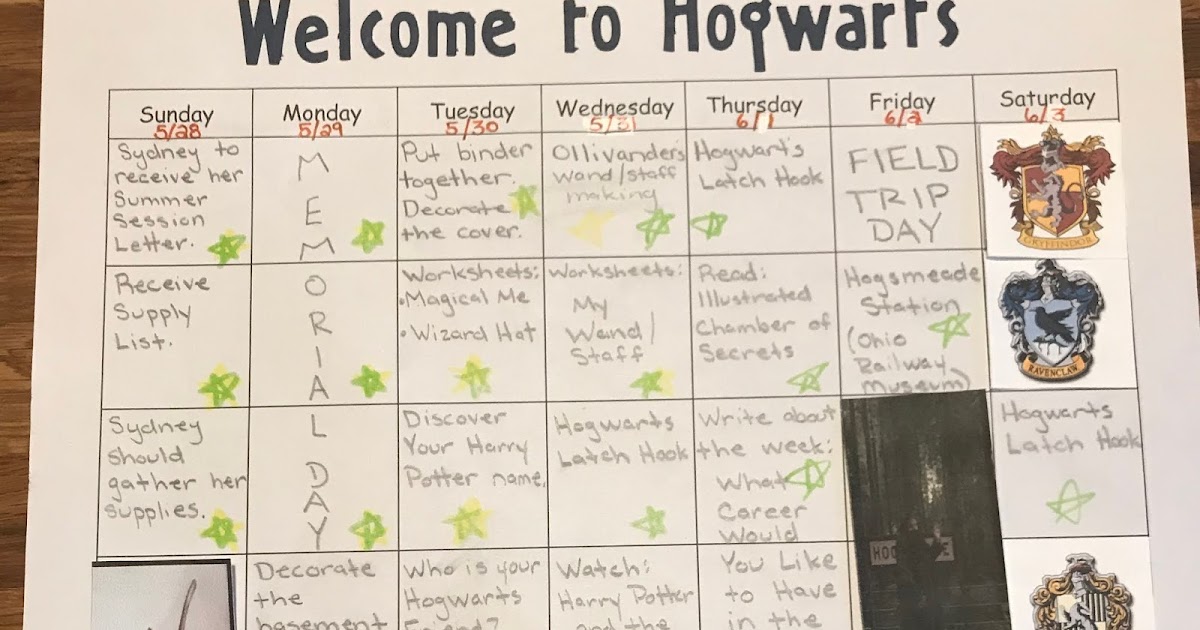 Welcome to Hogwarts
Sunday
5/28
Monday
5/29
Tuesday
5/30
Wednesday
5/31
Thursday
6/1
Friday
6/2
Saturday
6/3
Sydney to
receive her
Summer
Session
Letter.
M
E
M
O
R
I
A
L
D
A
Y
Put binder
together.
Decorate
the cover.
Ollivanders
wand/staff
making
Hogwart's
Latch Hook
FIELD
TRIP
DAY
GRYFFINDOR
Receive
Supply
List.
Worksheets:
•Magical Me
•Wizard Hat
Worksheets:
My
Wand/
Staff
Read:
Illustrated
Chamber of
Secrets
Hogsmeade
Station
(Ohio
Railway
Museum)
RAVENCLAW
Sydney
should
gather her
supplies.
Discover
Your Harry
Potter name.
Hogwarts
Latch Hook
Write about
the week:
What
Career
Would
Hogwarts
Latch Hook
Decorate
the
basement
Who is your
Hogwarts
Friend?
Watch:
Harry Potter
and the
You Like
to Have
in the